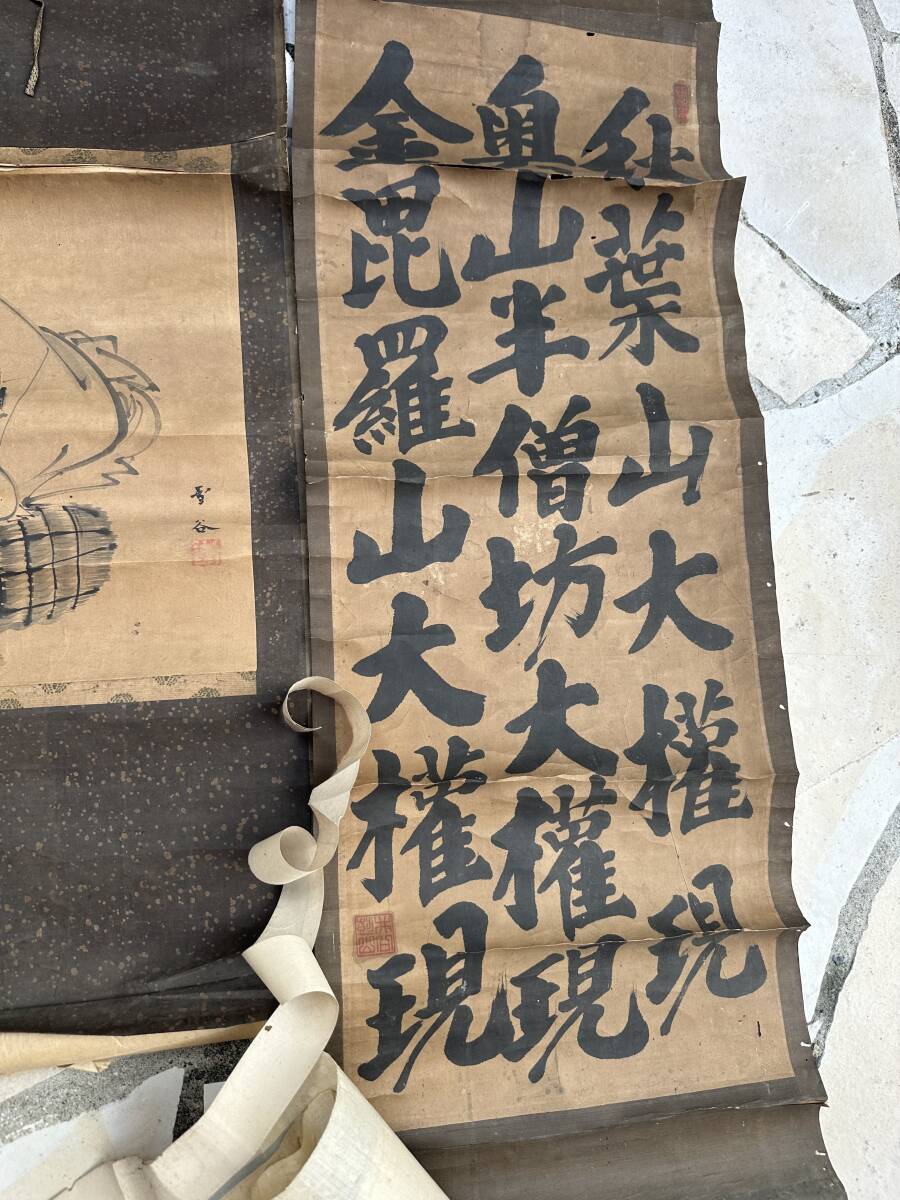 秋葉山大權現
奥山半僧坊大權現
金毘羅山大權現
雪谷